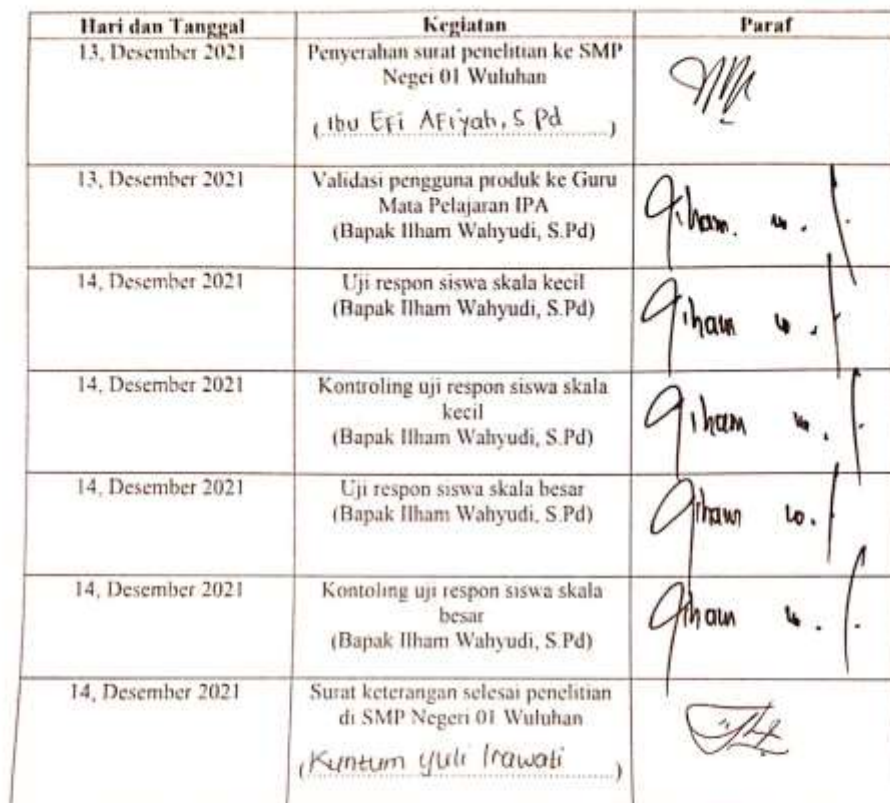 Hari dan Tanggal Kegiatan Paraf
13, Desember 2021 Penyerahan surat penelitian ke SMP
Negei 01 Wuluhan
(Ibu Efi Afiyah, S Pd)
13, Desember 2021 Validasi pengguna produk ke Guru
Mata Pelajaran IPA
(Bapak Ilham Wahyudi, S.Pd)
14, Desember 2021 Uji respon siswa skala kecil
(Bapak Ilham Wahyudi, S.Pd)
14, Desember 2021 Kontroling uji respon siswa skala
kecil
(Bapak Ilham Wahyudi, S.Pd)
14, Desember 2021 Uji respon siswa skala besar
(Bapak Ilham Wahyudi, S.Pd)
14, Desember 2021 Kontoling uji respon siswa skala
besar
(Bapak Ilham Wahyudi, S.Pd)
14, Desember 2021 Surat keterangan selesai penelitian
di SMP Negeri 01 Wuluhan
(Kuntum Yuli Irawati)